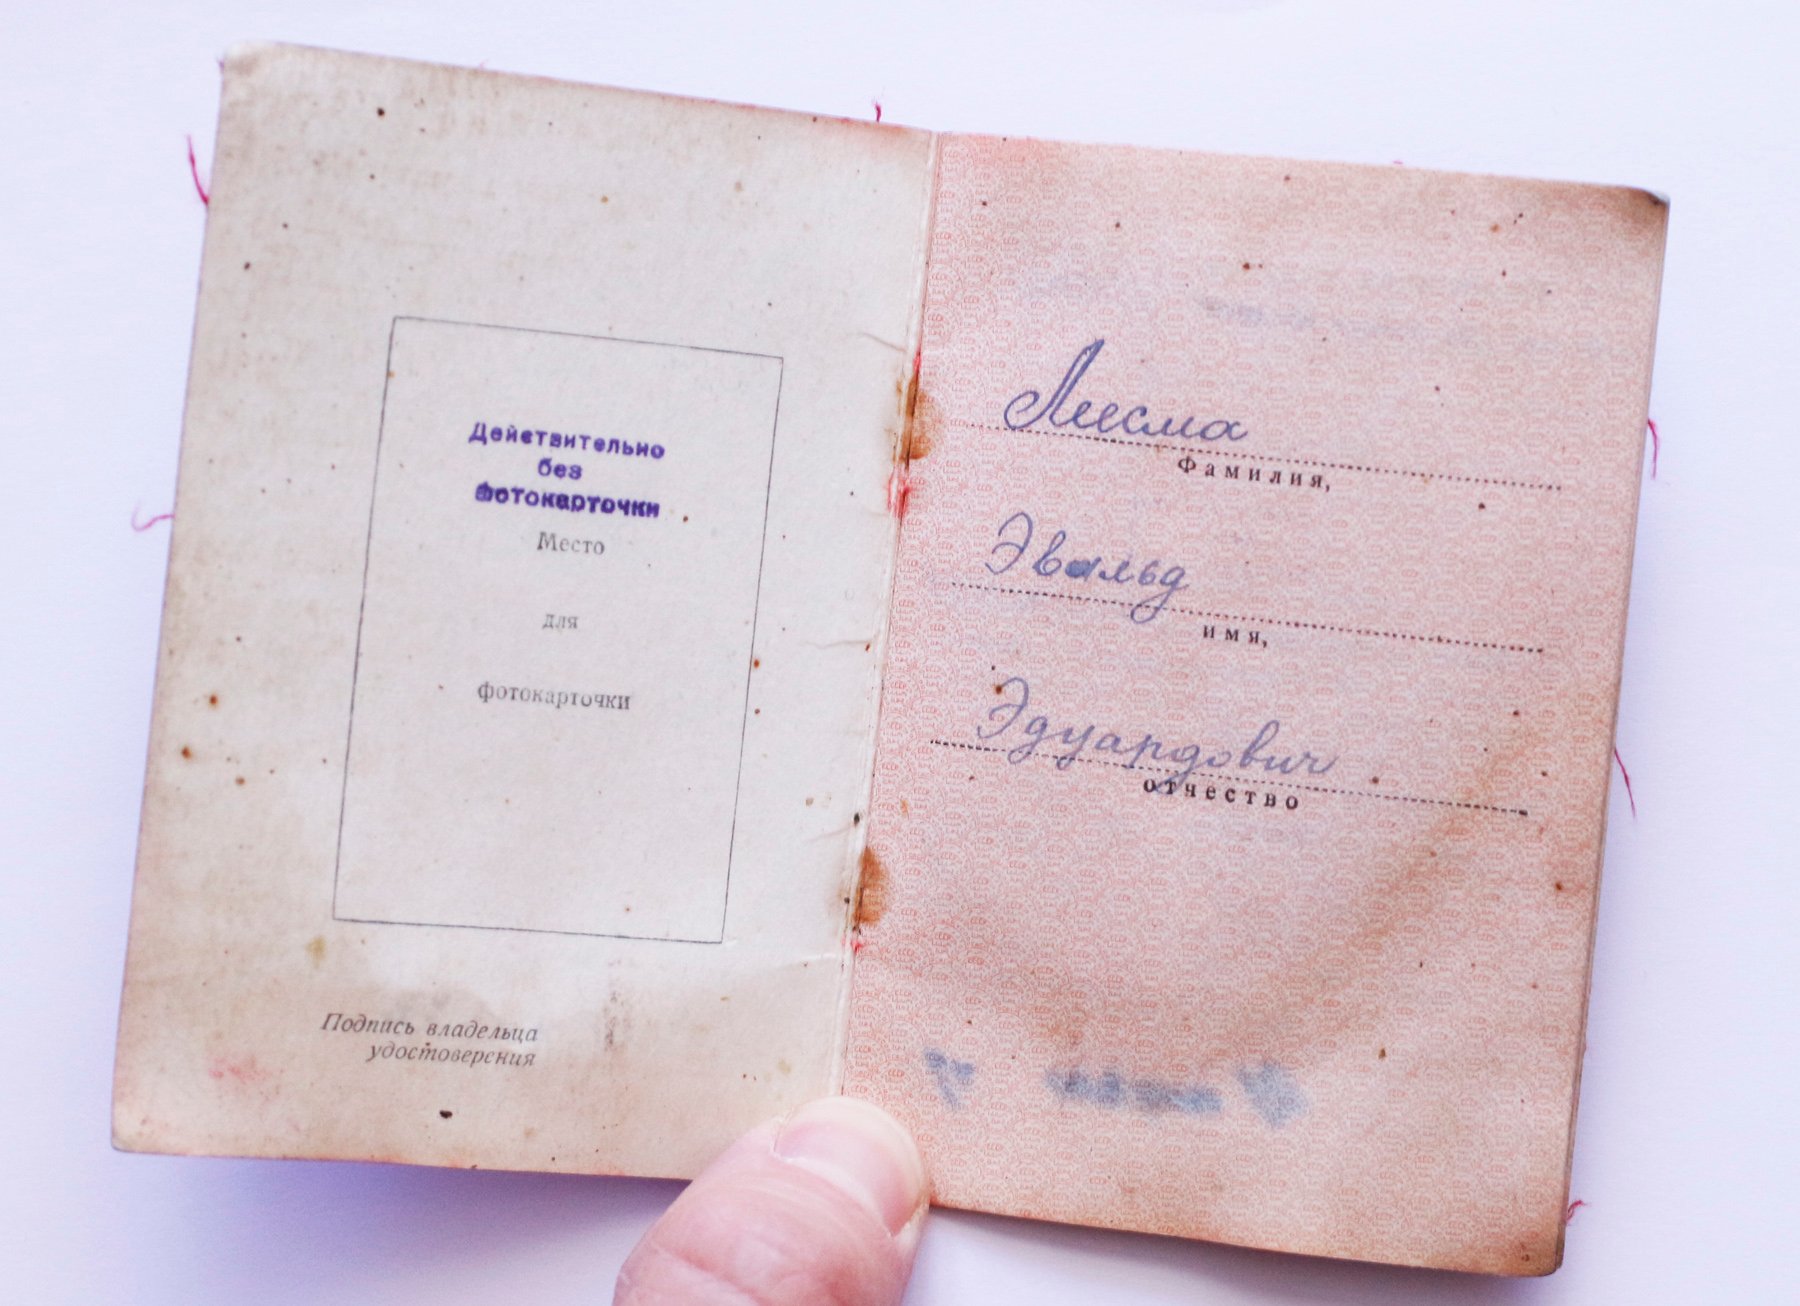 Действительно
без
фотокарточки
Место
для
фотокарточки
Подпись владельца
удостоверения
Леесма
Фамилия,
Эвальд
имя,
Эдуардович
отчество